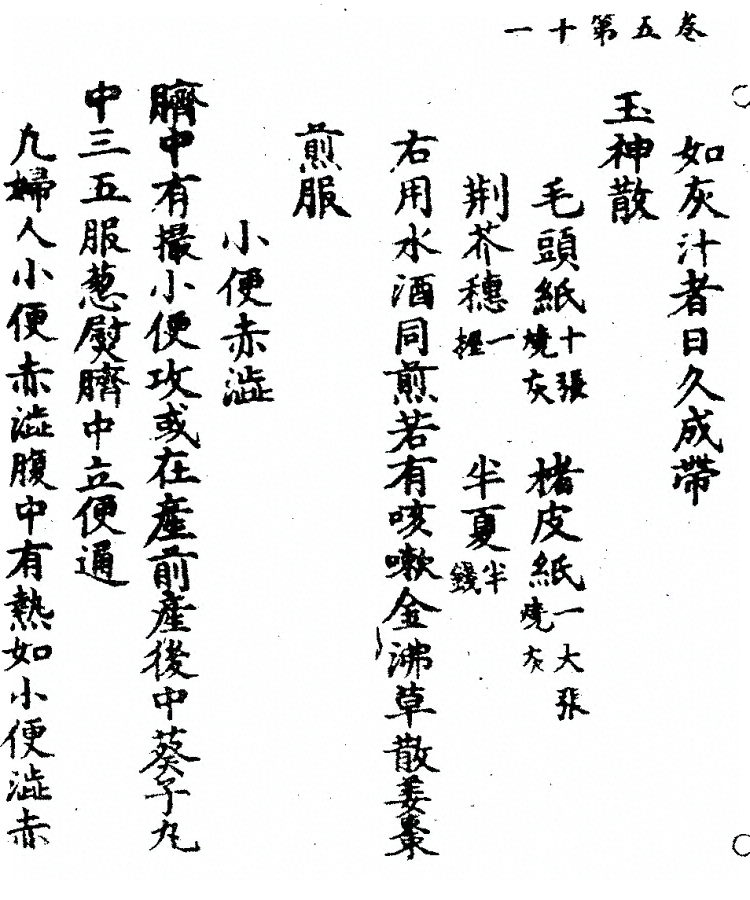 卷五第十一
如灰汁者日久成帶
玉神散
毛頭紙十張燒灰　楮皮紙一大張燒灰
荆芥穗一握　半夏半錢
右用水酒同煎若有咳嗽金沸草散姜棗
煎服
小便赤澁
臍中有撮小便攻或在產前產後中葵子丸
中三五服葱熨臍中立便通
凡婦人小便赤澁腹中有熱如小便澁赤